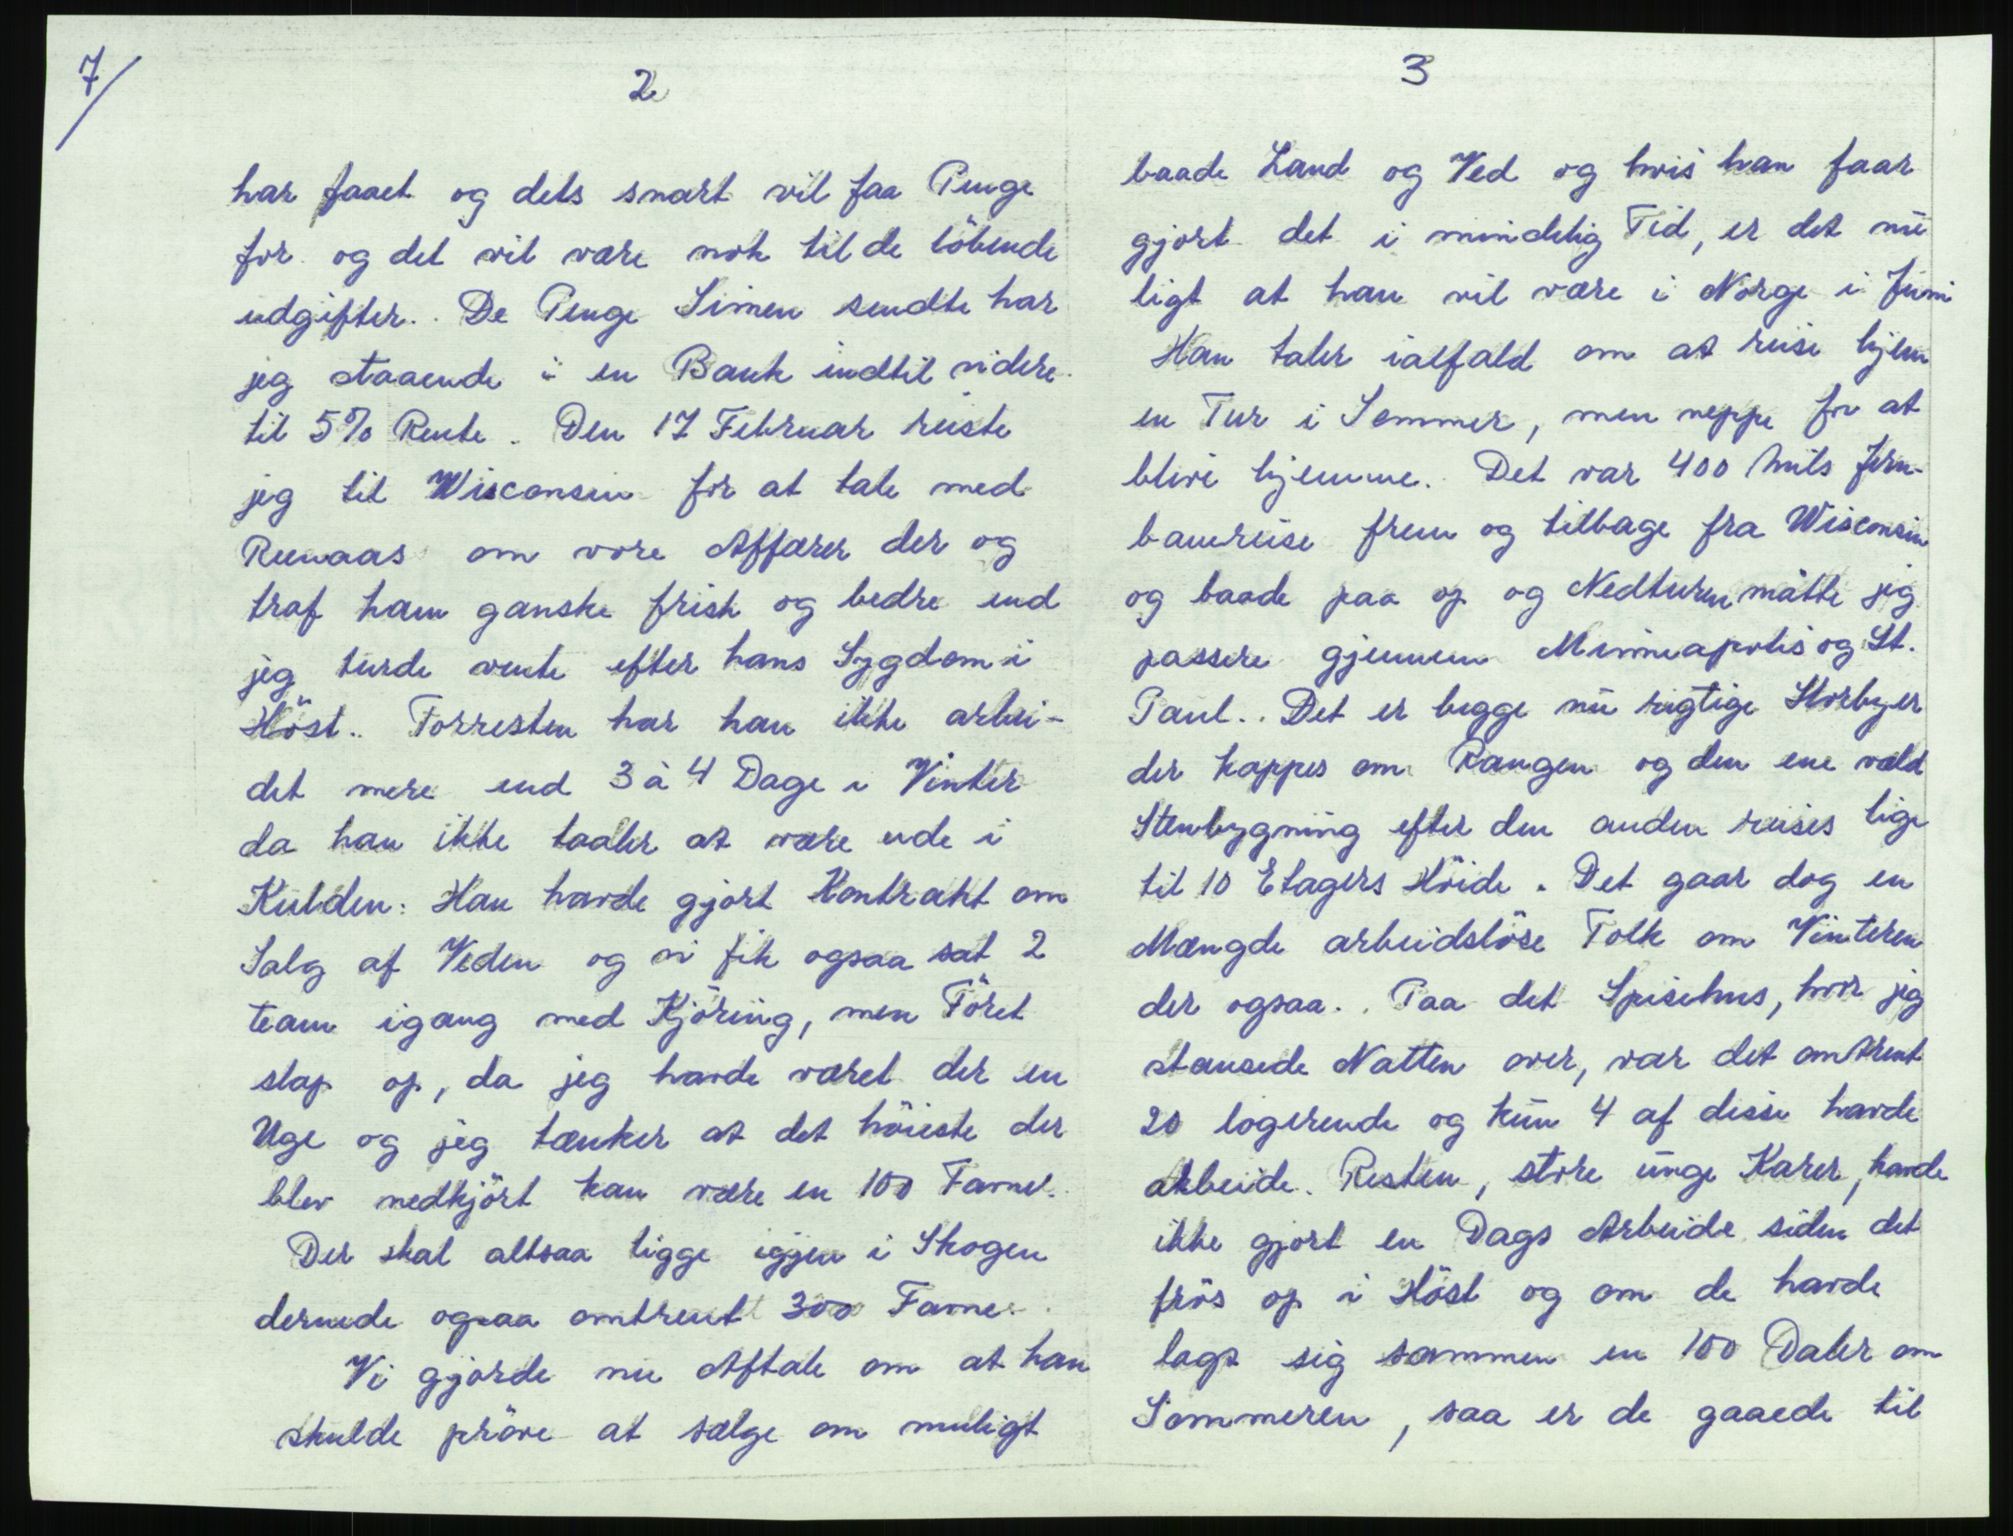 7/
2
har faaet og dels snart vil faa Penge
for og det vil være nok til de löbende
udgifter. De Penge Simen sendte har
jeg staaende i en Bank indtil videre
til 5% Rente. Den 17 Februar reiste
jeg til Wisconsin for at tale med
Reenaas om vore Affærer der og
traf ham ganske frisk og bedre end
jeg turde vente efter hans Sygdom i
Höst. Forresten har han ikke arbei-
det mere end 3 à 4 Dage i Vinter
da han ikke taaler at være ude i
Kulden. Han havde gjort Kontrakt om
Salg af Veden og vi fik ogsaa sat 2
team igang med Kjöring, men Föret
slap op, da jeg havde været der en
Uge og jeg tænker at det höieste der
blev nedkjört kan være en 100 Favne.
Der skal altsaa ligge igjen i Skogen
dernede ogsaa omtrent 300 Favne.
Vi gjorde nu Aftale om at han
skulde pröve at sælge om muligt
3
baade Land og Ved og hvis han faar
gjort det i mindelig Tid, er det mu
ligt at han vil være i Norge i Juni
Han taler ialfald om at reise hjem
en Tur i Sommer, men neppe for at
blive hjemme. Det var 400 mils Jern-
banereise frem og tilbage fra Wisconsin
og baade paa op og Nedturen måtte jeg
passere gjennem Minneapolis og St.
Paul. Det er begge nu rigtige Storbyer
der kappes om Rangen og den ene væld
Stenbygning efter den anden reises lige
til 10 Etagers Höide. Det gaar dog en
Mængde arbeidslöse Folk om Vinteren
der ogsaa. Paa det Spisehus, hvor jeg
stansede Natten over, var det omtrent
20 logerende og kun 4 af disse havde
arbeide. Resten, store unge Karer, havde
ikke gjort en Dags Arbeide siden det
frös op i Höst og om de havde
lagt sig sammen en 100 Daler om
Sommeren, saa er de gaaede til